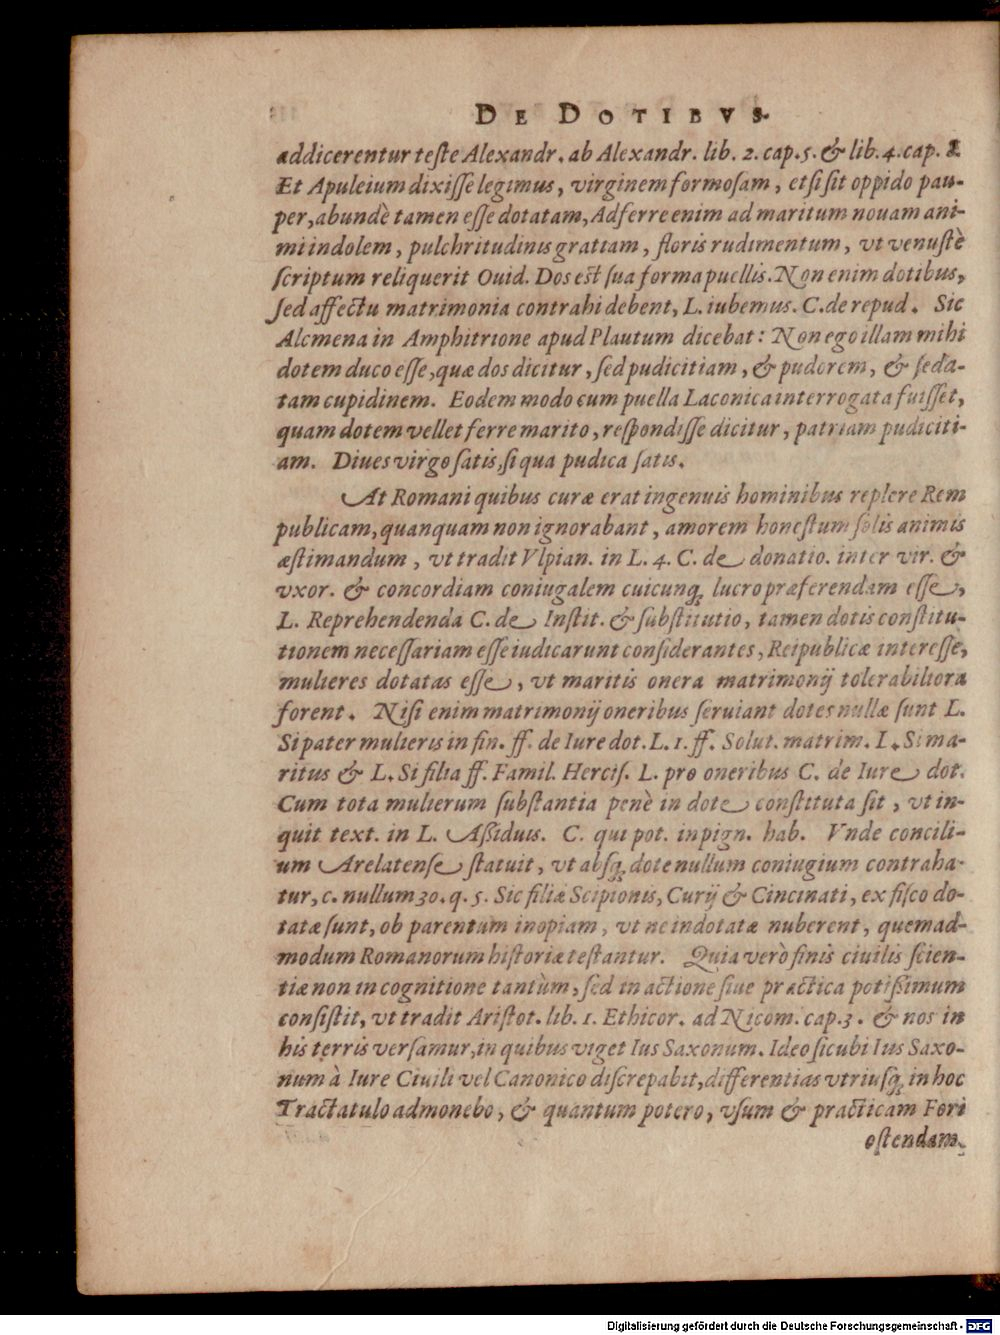 DE DOTIBVS.
addicerentur teste Alexandr. ab Alexandr. lib. 2. cap. 5. & lib. 4. cap.
Et Apuleium dixisse legimus, virginem formosam, etsi sit oppido pau-
per, abundè tamen esse dotatam, Adferre enim ad maritum nouam ani-
mi indolem, pulchritudinis gratiam, floris rudimentum, vt venustè
scriptum reliquerit Ouid. Dos est sua forma puellis. Non enim dotibus,
sed affectu matrimonia contrahi debent, L. iubemus. C. de repud. Sic
Alcmena in Amphitrione apud Plautum dicebat: Non ego illam mihi
dotem duco esse, quæ dos dicitur, sed pudicitiam, & pudorem, & seda-
tam cupidinem. Eodem modo cum puella Laconica interrogata fuisset,
quam dotem vellet ferre marito, respondisse dicitur, patriam pudiciti-
am. Diues virgo satis, si qua pudica satis.
At Romani quibus curæ erat ingenuis hominibus replere Rem
publicam, quanquam non ignorabant, amorem honestum solis animis
æstimandum, vt tradit Vlpian. in L. 4. C. de donatio. inter vir. &
vxor. & concordiam coniugalem cuicunq; lucro præferendam esse,
L. Reprehendenda C. de Instit. & substitutio, tamen dotis constitu-
tionem necessariam esse iudicarunt considerantes, Reipublicæ interesse,
mulieres dotatas esse, vt maritis onera matrimonij tolerabiliora
forent. Nisi enim matrimonij oneribus seruiant dotes nullæ sunt L.
Si pater mulieris in fin. ff. de Iure dot. L. 1. ff. Solut. matrim. L. Si ma-
ritus & L. Si filia ff. Famil. Hercis. L. pro oneribus C. de Iure dot.
Cum tota mulierum substantia penè in dote constituta sit, vt in-
quit text. in L. Aßiduis. C. qui pot. in pign. hab. Vnde concili-
um Arelatense statuit, vt absq; dote nullum coniugium contraha-
tur, c. nullum 30. q. 5. Sic filiæ Scipionis, Curij & Cincinati, ex fisco do-
tatæ sunt, ob parentum inopiam, vt ne indotatæ nuberent, quemad-
modum Romanorum historiæ testantur. Quia verò finis ciuilis scien-
tiæ non in cognitione tantùm, sed in actione siue practica potißimum
consistit, vt tradit Aristot. lib. 1. Ethicor. ad Nicom. cap. 3. & nos in
his terris versamur, in quibus viget Ius Saxonum. Ideo sicubi Ius Saxo-
num à Iure Ciuili vel Canonico discrepabit, differentias vtriusq; in hoc
Tractatulo admonebo, & quantum potero, vsum & practicam Fori
ostendam.
Digitalisierung gefördert durch die Deutsche Forschungsgemeinschaft - DFG